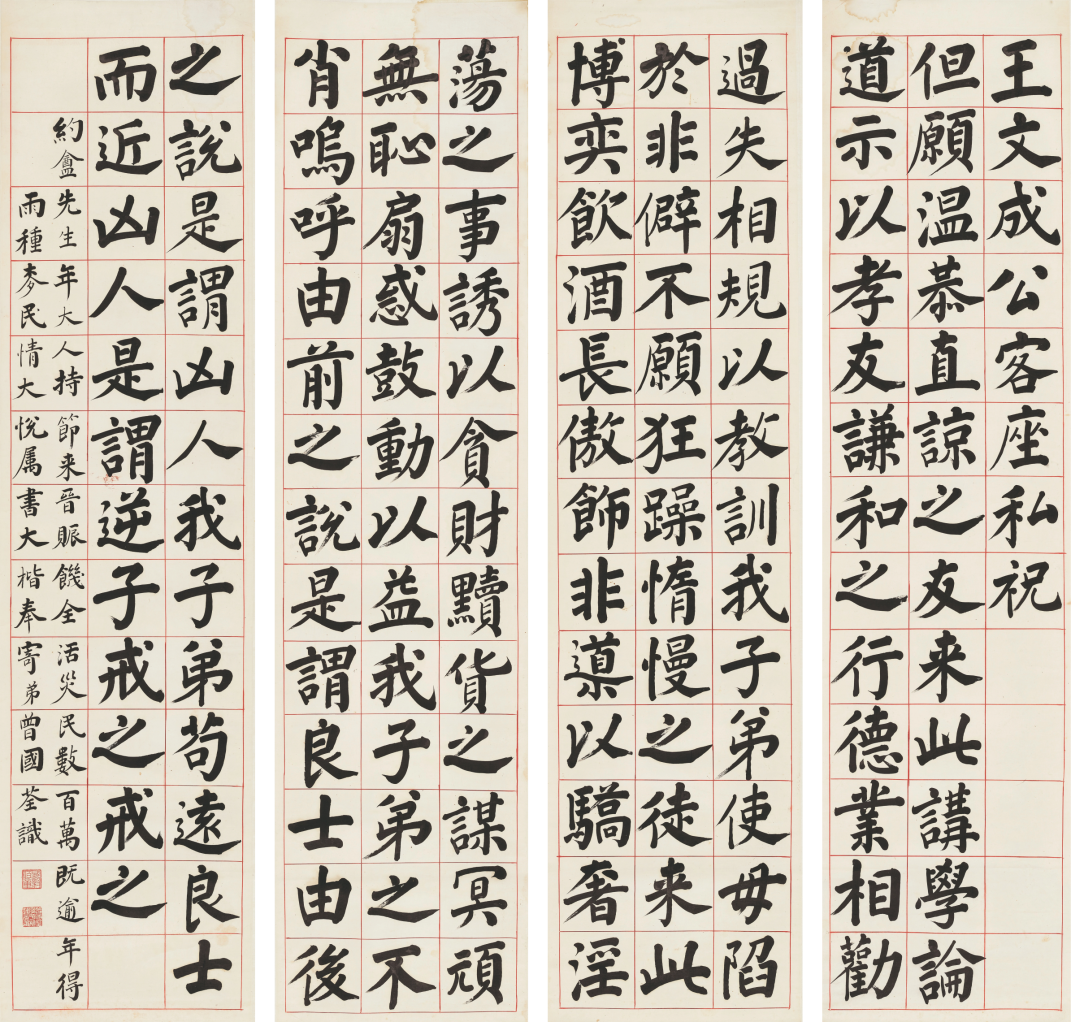 王文成公客座私祝
但願温恭直諒之友来此講學論
道示以孝友謙和之行德業相勸
過失相規以教訓我子弟使毋陷
於非僻不願狂躁惰慢之徒来此
博奕飲酒長傲飾非導以驕奢淫
蕩之事誘以貪財黷貨之謀冥頑
無恥扇惑鼓動以益我子弟之不
肖嗚呼由前之說是謂良士由後
之說是謂凶人我子弟苟遠良士
而近凶人是謂逆子戒之戒之
約盦先生年大人持節来晉賑饑全活災民數百萬既逾年得
雨種麥民情大悅属書大楷奉寄弟曾國荃識